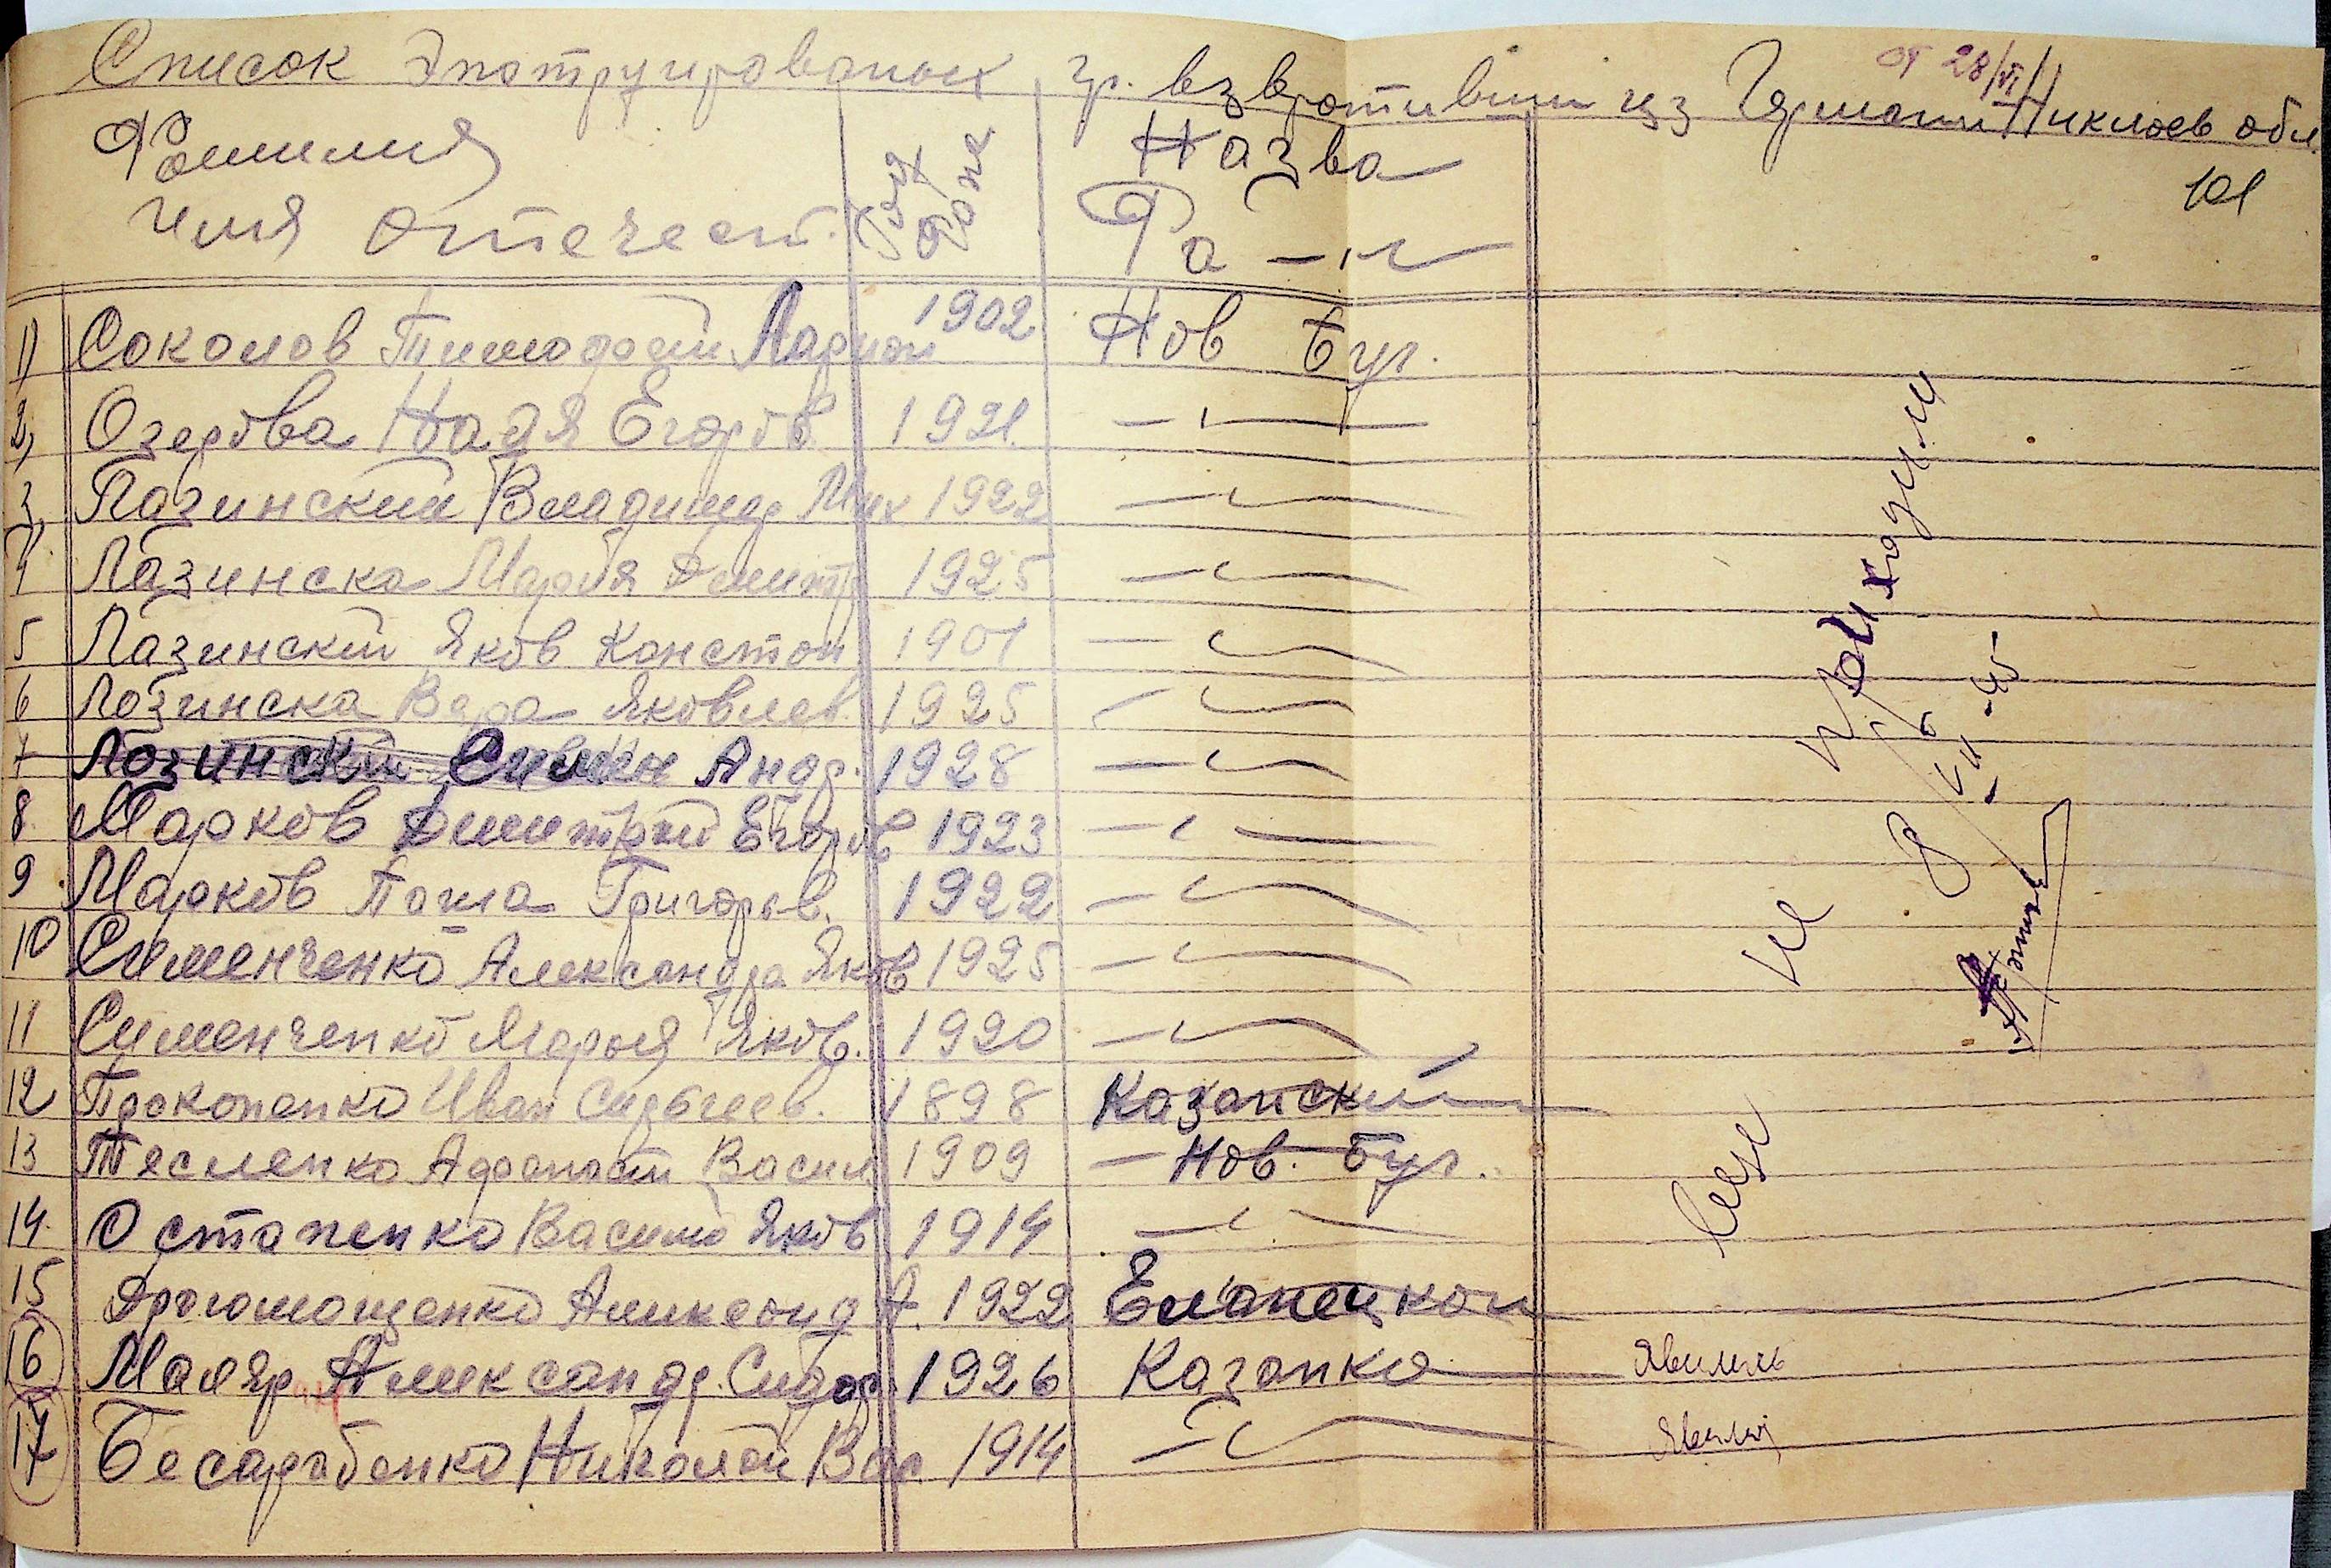 Список Эпотруированых гр. взвротивши из Германии Николаев обл.
от 28/VI
101
Фамилия
Имя Отечест.
Год Рож
Назва
Ра - н
1) Соколов Тимофей Ларион 1902 Нов Буг.
2) Озерова Надя Егоров. 1921 —"—
3) Лазинский Владимир Мих 1922 —"—
4 Лазинска Мария Дмитр 1925 —"—
5 Лазинский Яков Констан 1901 —"—
6 Лозинска Вера Яковлев. 1925 —"—
7 Лозинский Андр. 1928 —"—
8. Марков Дмитрий Егоров 1923 —"—
9 Марков Григорьв. 1922 —"—
10 Сименченко Александра Яков 1925 —"—
11 Сименченко Марья Яков. 1920 —"—
12 Прокопенко Иван Сиргеев. 1898 Казанский
13 Тесленко Афонасий Васил 1909 — Нов. Буг.
14. Остапенко Василий Яков 1914 —"—
15 А. 1922 Еланецкой
16 Маляр Александр. Сидор. 1926 Казанка Явились
17 Бесарабенко Николай Вас. 1914 —"—
еще не приходили
8/VII-45